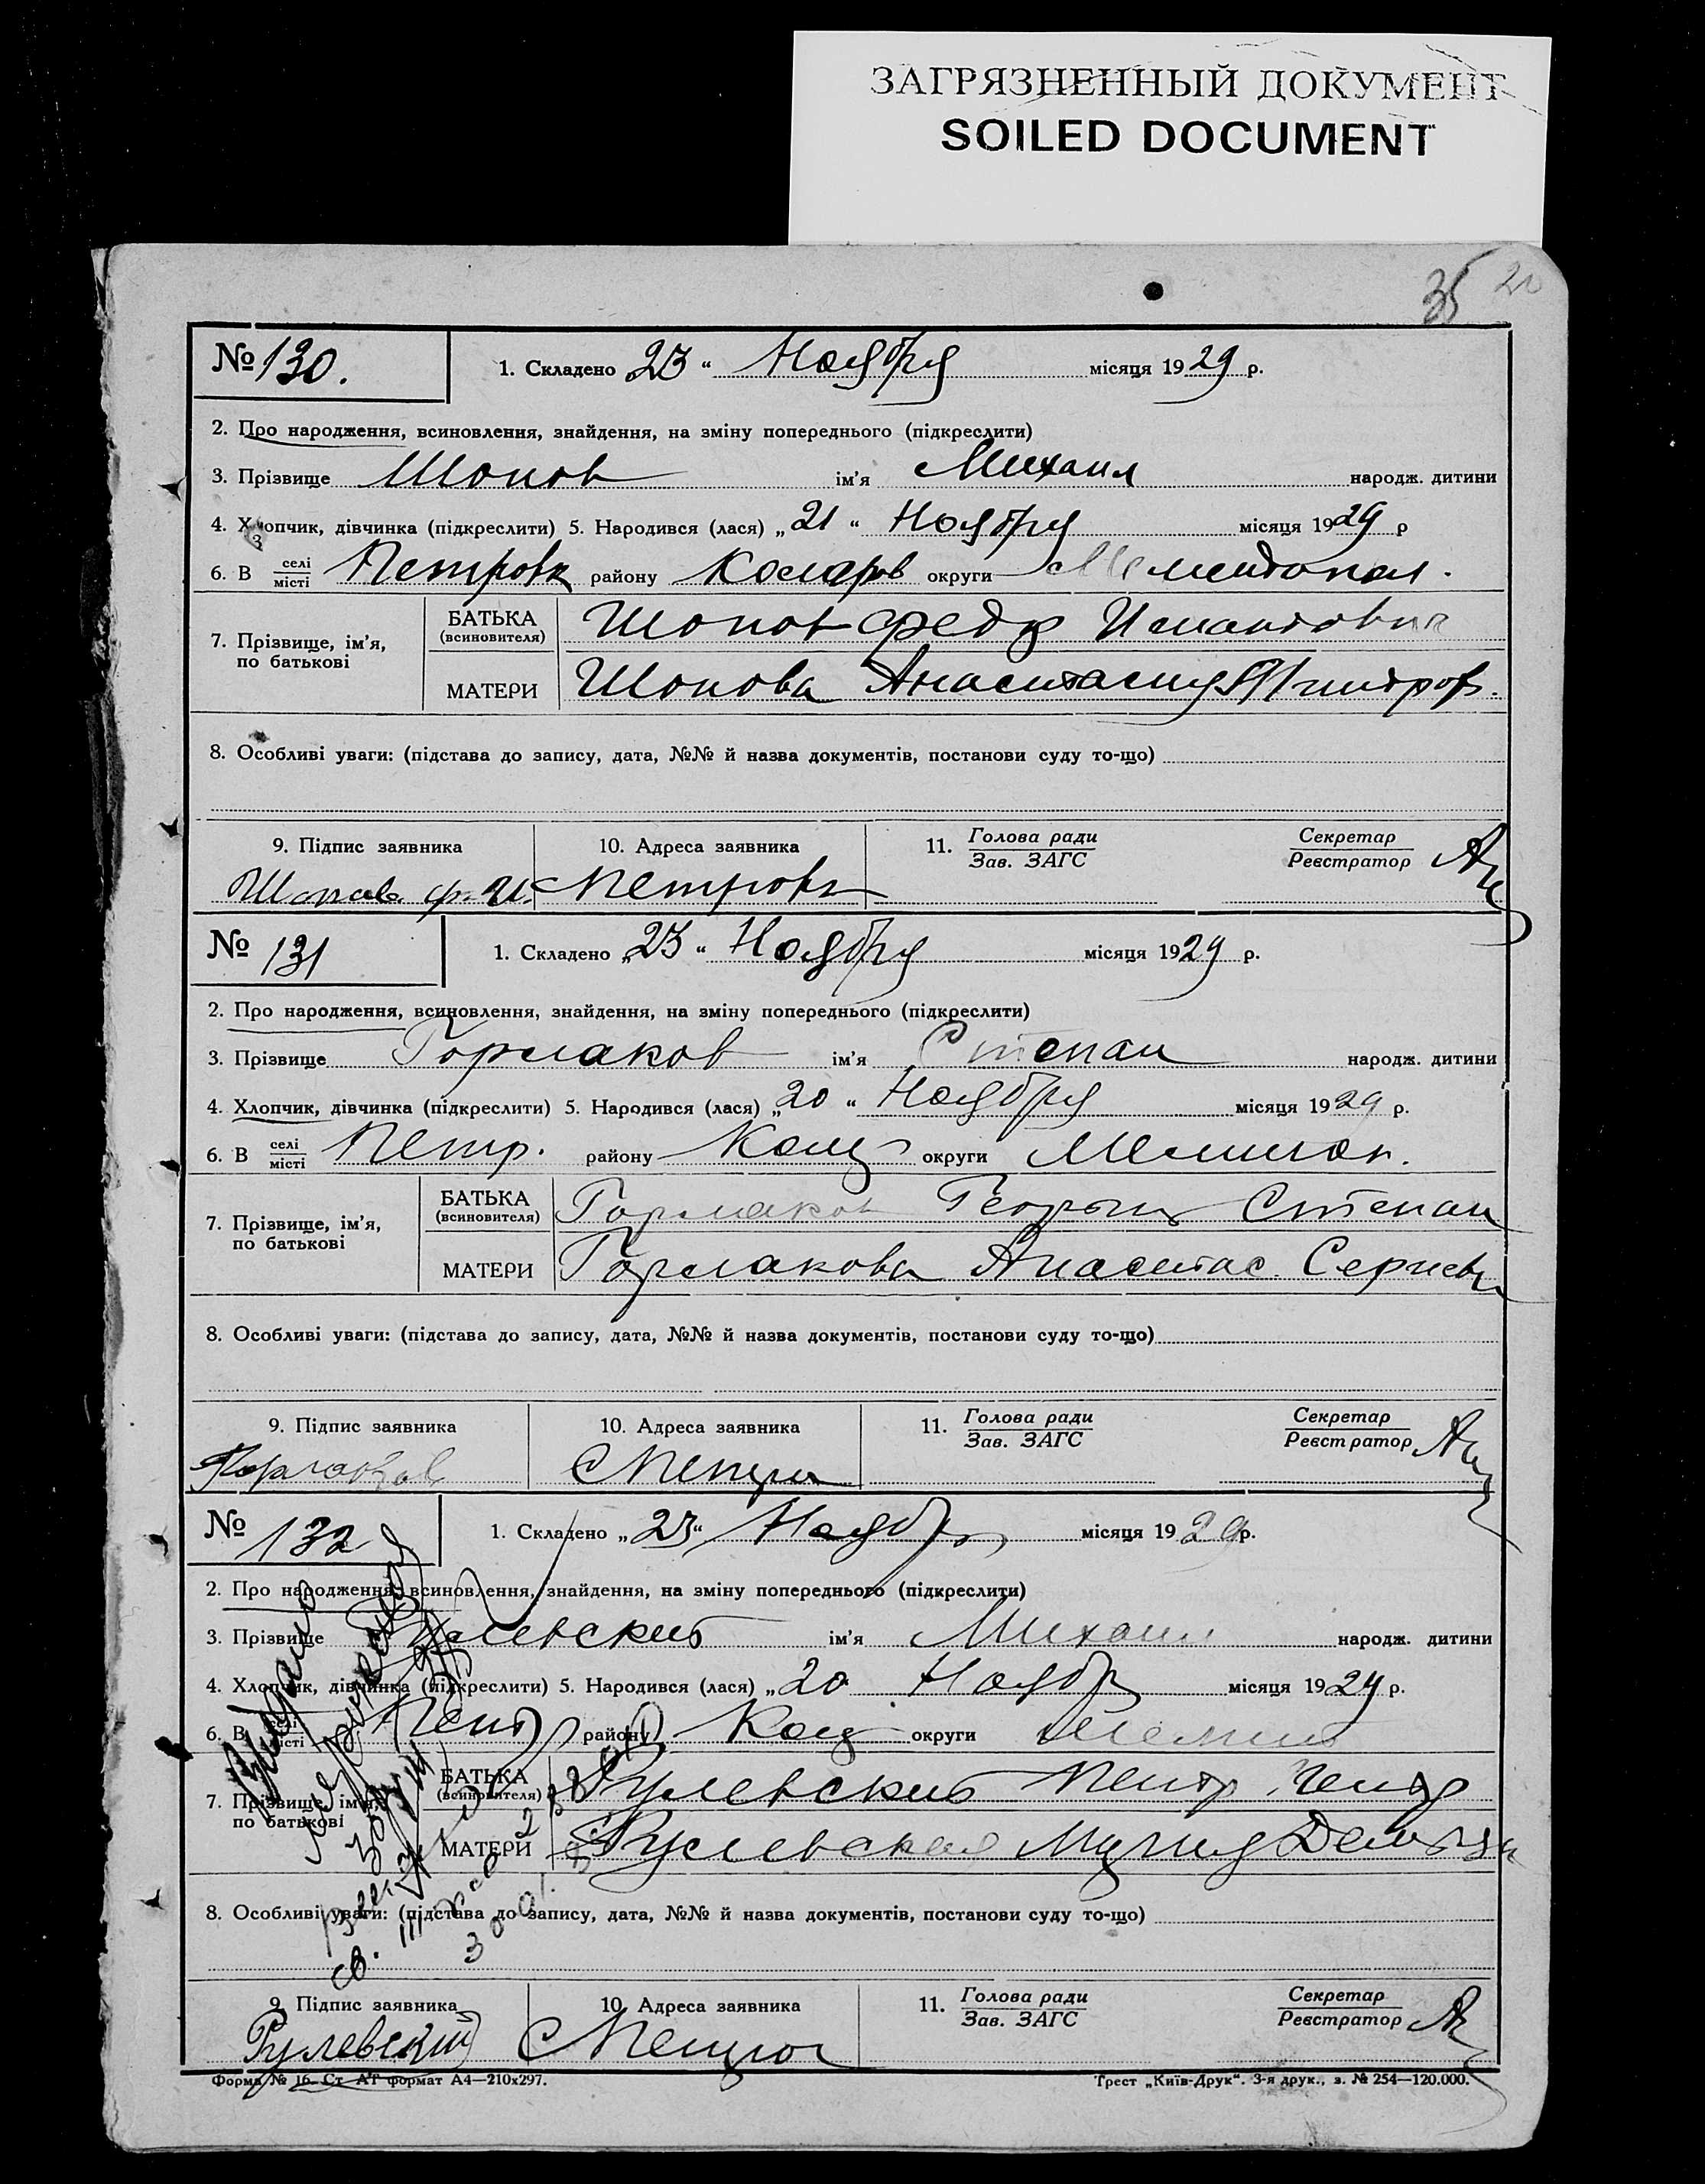 ЗАГРЯЗНЕННЫЙ ДОКУМЕНТ
SOILED DOCUMENT
35 20
№ 130. 1. Складено „23“ Ноября місяця 1929 р.
2. Про народження, всиновлення, знайдення, на зміну попереднього (підкреслити)
3. Прізвище Шопов ім'я Михаил народж. дитини
4. Хлопчик, дівчинка (підкреслити) 5. Народився (лася) „21“ Ноября місяця 1929 р
6. В селі місті Петровк району Коларов округи
7. Прізвище, ім'я, по батькові
БАТЬКА (всиновителя) Шопов Федор
МАТЕРИ Шопова Анастасия Дмитров.
8. Особливі уваги: (підстава до запису, дата, №№ й назва документів, постанови суду то-що)
9. Підпис заявника 10. Адреса заявника 11. Голова ради Зав. ЗАГС Секретар Реєстратор
Шопов Ф. И. с Петровк
№ 131 1. Складено „23“ Ноября місяця 1929 р.
2. Про народження, всиновлення, знайдення, на зміну попереднього (підкреслити)
3. Прізвище Гормаков ім'я Степан народж. дитини
4. Хлопчик, дівчинка (підкреслити) 5. Народився (лася) „20“ Ноября місяця 1929 р.
6. В селі місті Петр. району Кол округи Мелитоп.
7. Прізвище, ім'я, по батькові
БАТЬКА (всиновителя) Гормаков Георгий Степан
МАТЕРИ Гормакова Анастас. Сергиев
8. Особливі уваги: (підстава до запису, дата, №№ й назва документів, постанови суду то-що)
9. Підпис заявника 10. Адреса заявника 11. Голова ради Зав. ЗАГС Секретар Реєстратор
№ 132 1. Складено „23“ Ноябр місяця 1929 р.
2. Про народження, всиновлення, знайдення, на зміну попереднього (підкреслити)
3. Прізвище Рулевский ім'я Михаил народж. дитини
4. Хлопчик, дівчинка (підкреслити) 5. Народився (лася) „20 Ноябр місяця 1929 р.
6. В селі місті Петр району Кол округи Мелит
7. Прізвище, ім'я, по батькові
БАТЬКА (всиновителя) Рулевский Петр
МАТЕРИ Рулевская
8. Особливі уваги: (підстава до запису, дата, №№ й назва документів, постанови суду то-що)
9. Підпис заявника 10. Адреса заявника 11. Голова ради Зав. ЗАГС Секретар Реєстратор
Рулевский
Форма № 16. Ст. АТ формат А4—210х297. Трест „Київ-Друк“. 3-я друк., з. № 254—120.000.